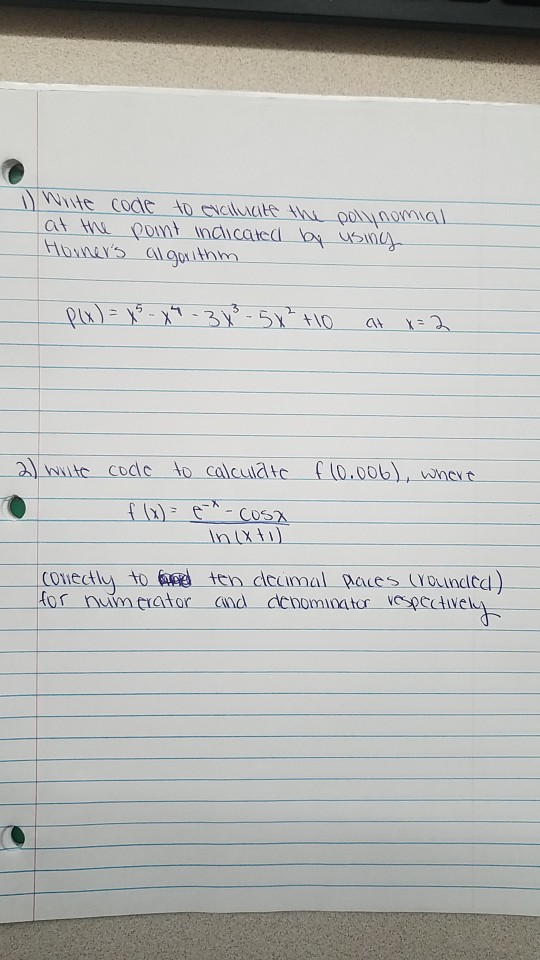 1) Write code to evaluate the polynomial
at the point indicated by using
Horner's algorithm
p(x) = x⁵ - x⁴ - 3x³ - 5x² + 10 at x = 2
2) write code to calculate f(0.006), where
f(x) = e^-x - cosx
ln(x+1)
correctly to ten decimal places (rounded)
for numerator and denominator respectively